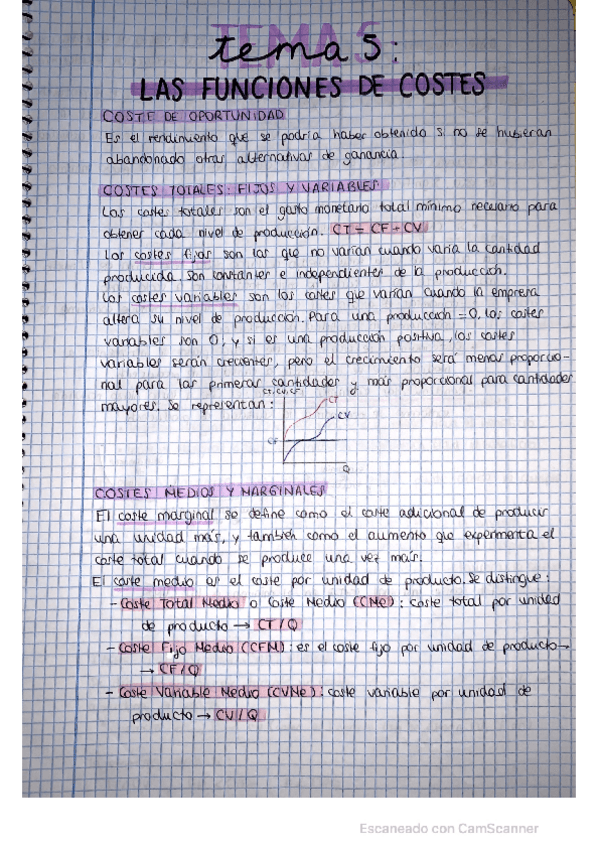 TEMA 5
tema 5:
LAS FUNCIONES DE COSTES
COSTE DE OPORTUNIDAD
Es el rendimiento que se podría haber obtenido si no se hubieran
abandonado otras alternativas de ganancia.
COSTES TOTALES: FIJOS Y VARIABLES
Los costes totales son el gasto monetario total mínimo necesario para
obtener cada nivel de producción. CT = CF + CV
Los costes fijos son los que no varían cuando varía la cantidad
producida. Son constantes e independientes de la producción.
Los costes variables son los costes que varían cuando la empresa
altera su nivel de producción. Para una producción = 0, los costes
variables son 0, y si es una producción positiva, los costes
variables serán crecientes, pero el crecimiento será menos proporcio-
nal para las primeras cantidades y más proporcional para cantidades
mayores. Se representan:
CT, CV, CF
CT
CV
CF
Q
COSTES MEDIOS Y MARGINALES
El coste marginal se define como el coste adicional de producir
una unidad más, y también como el aumento que experimenta el
coste total cuando se produce una vez más.
El coste medio es el coste por unidad de producto. Se distingue:
- Coste Total Medio o Coste Medio (CMe): coste total por unidad
de producto → CT / Q
- Coste Fijo Medio (CFM): es el coste fijo por unidad de producto →
→ CF / Q
- Coste Variable Medio (CVMe): coste variable por unidad de
producto → CV / Q
Escaneado con CamScanner